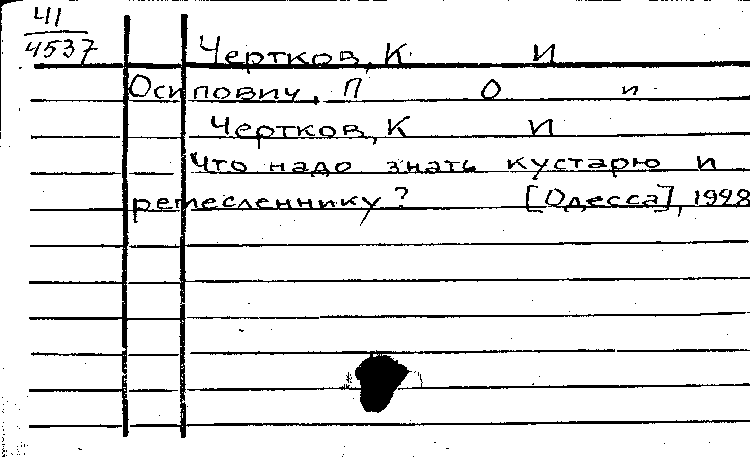 41
4537
Чертков, К И
Осипович, П О и
Чертков, К И
Что надо знать кустарю и
ремесленнику? [Одесса], 1928